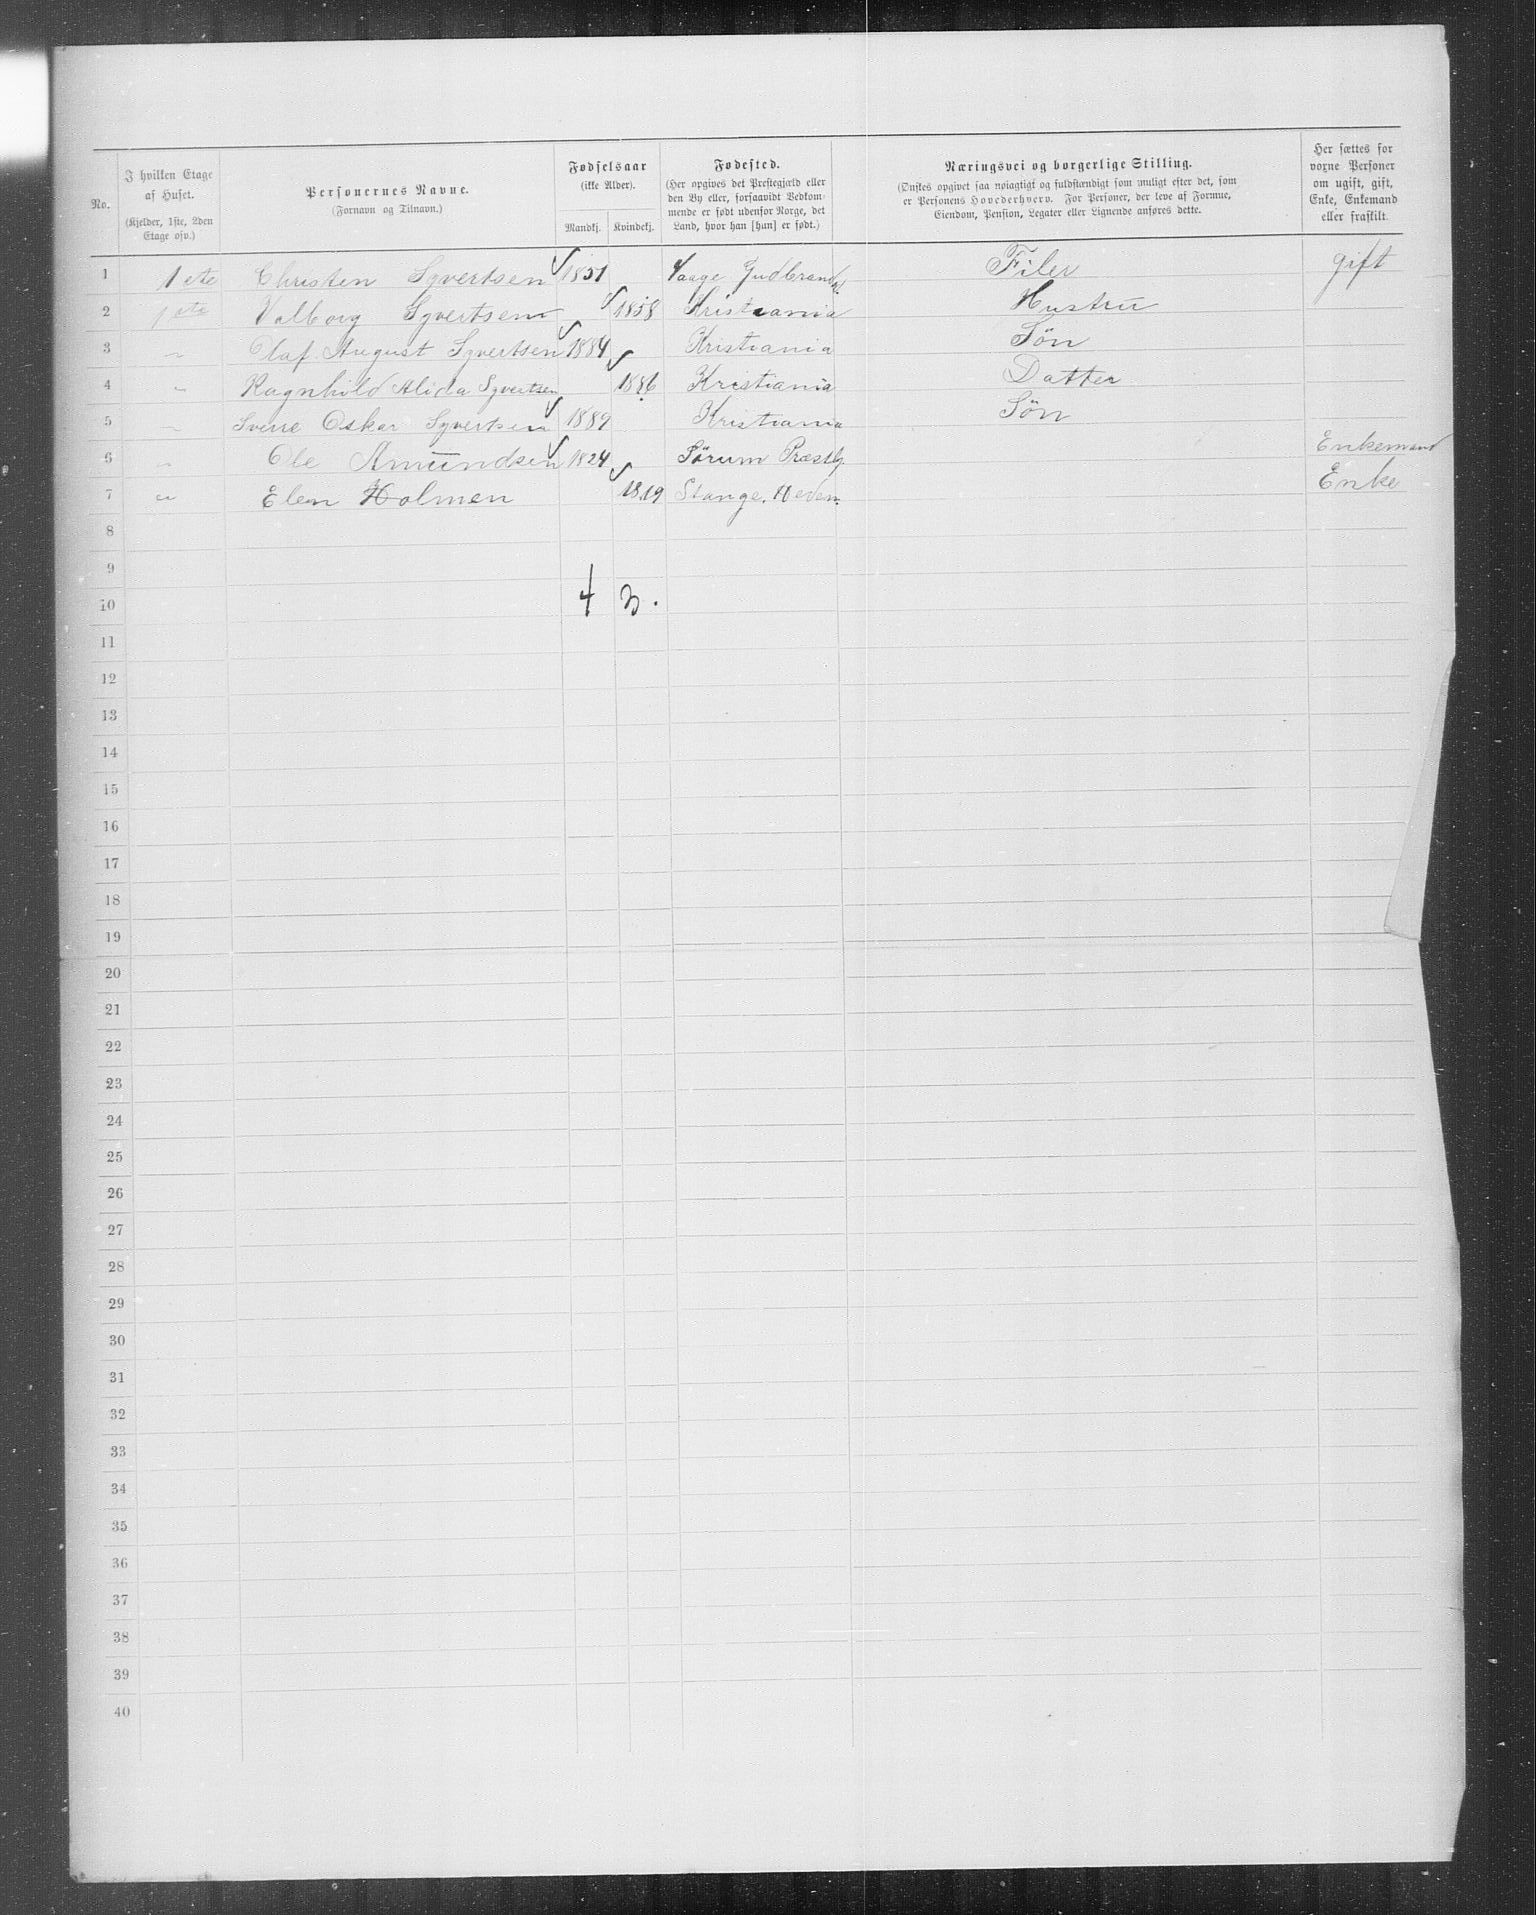 No.
I hvilken Etage af Huset.
(Kjelder, 1ste, 2den Etage osv.)
Personernes Navne.
(Fornavn og Tilnavn.)
Fødselsaar
(ikke Alder).
Mandkj. Kvindekj.
Fødested.
(Her opgives det Prestegjæld eller
den By eller, forsaavidt Vedkom-
mende er født udenfor Norge, det
Land, hvor han [hun] er født.)
Næringsvei og borgerlige Stilling.
(Ønskes opgivet saa nøiagtigt og fuldstændigt som muligt efter det, som
er Personens Hovederhverv. For Personer, der leve af Formue,
Eiendom, Pension, Legater eller Lignende anføres dette.
Her sættes for
voxne Personer
om ugift, gift,
Enke, Enkemand
eller fraskilt.
1 1 ete Christen Syvertsen 1851 Vaage Gudbrandsd. Filer gift
2 1 ete Valborg Syvertsen 1858 Kristiania Hustru
3 " Olaf August Syvertsen 1884 Kristiania Søn
4 " Ragnhild Alida Syvertsen 1886 Kristiania Datter
5 " Sverre Oskar Syvertsen 1889 Kristiania Søn
6 " Ole Amundsen 1824 Sørum Præstg. Enkemand
7 " Elen Holmen 1819 Stange. Hedem. Enke
8
9
10 4 3.
11
12
13
14
15
16
17
18
19
20
21
22
23
24
25
26
27
28
29
30
31
32
33
34
35
36
37
38
39
40